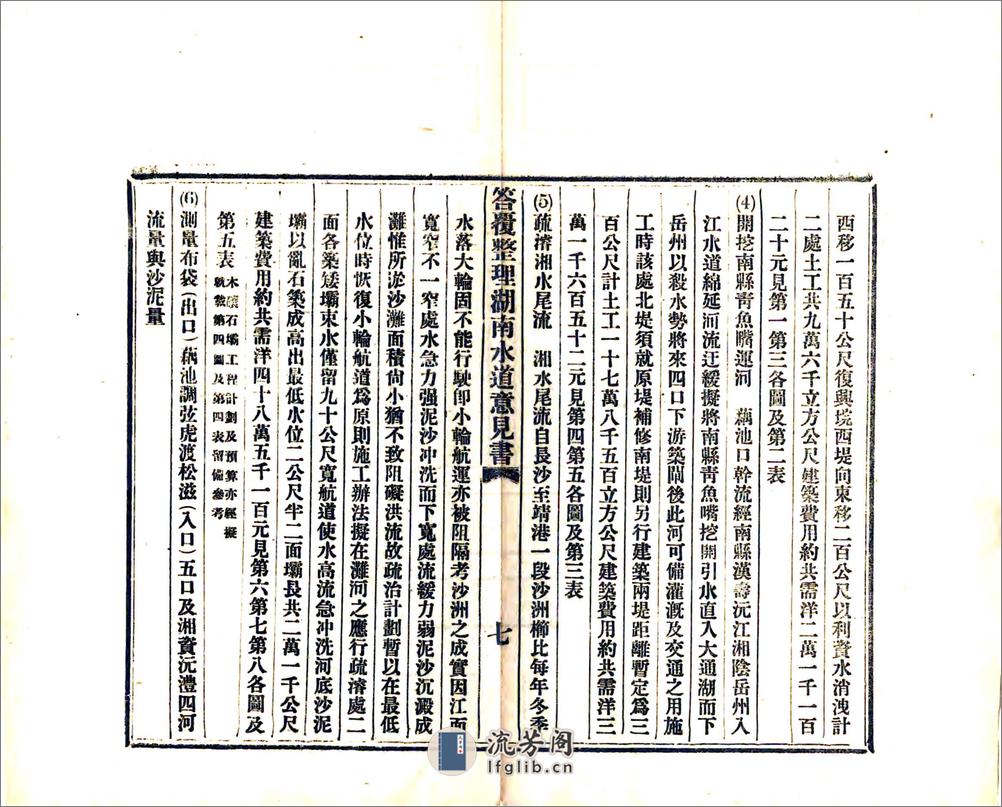 西移一百五十公尺復興垸西堤向東移二百公尺以利資水消洩計
二處土工共九萬六千立方公尺建築費用約共需洋二萬一千一百
二十元見第一第三各圖及第二表
⑷開挖南縣靑魚嘴運河　藕池口幹流經南縣漢壽沅江湘陰岳州入
江水道綿延河流迂緩擬將南縣靑魚嘴挖開引水直入大通湖而下
岳州以殺水勢將來四口下游築閘後此河可備灌漑及交通之用施
工時該處北堤須就原堤補修南堤則另行建築兩堤距離暫定爲三
百公尺計土工一十七萬八千五百立方公尺建築費用約共需洋三
萬一千六百五十二元見第四第五各圖及第三表
⑸疏濬湘水尾流　湘水尾流自長沙至靖港一段沙洲櫛比每年冬季
答覆整理湖南水道意見書
七
水落大輪固不能行駛卽小輪航運亦被阻隔考沙洲之成實因江面
寬窄不一窄處水急力强泥沙冲洗而下寬處流緩力弱泥沙沉澱成
灘惟所淤沙灘面積尙小猶不致阻礙洪流故疏治計劃暫以在最低
水位時恢復小輪航道爲原則施工辦法擬在灘河之應行疏濬處二
面各築矮壩束水僅留九十公尺寬航道使水高流急冲洗河底沙泥
壩以亂石築成高出最低水位二公尺半二面壩長共二萬一千公尺
建築費用約共需洋四十八萬五千一百元見第六第七第八各圖及
第五表木石壩工程計劃及預算亦經擬
就載第四圖及第四表留備參考
⑹測量布袋（出口）藕池調弦虎渡松滋（入口）五口及湘資沅澧四河
流量與沙泥量
流芳阁
lfglib.cn